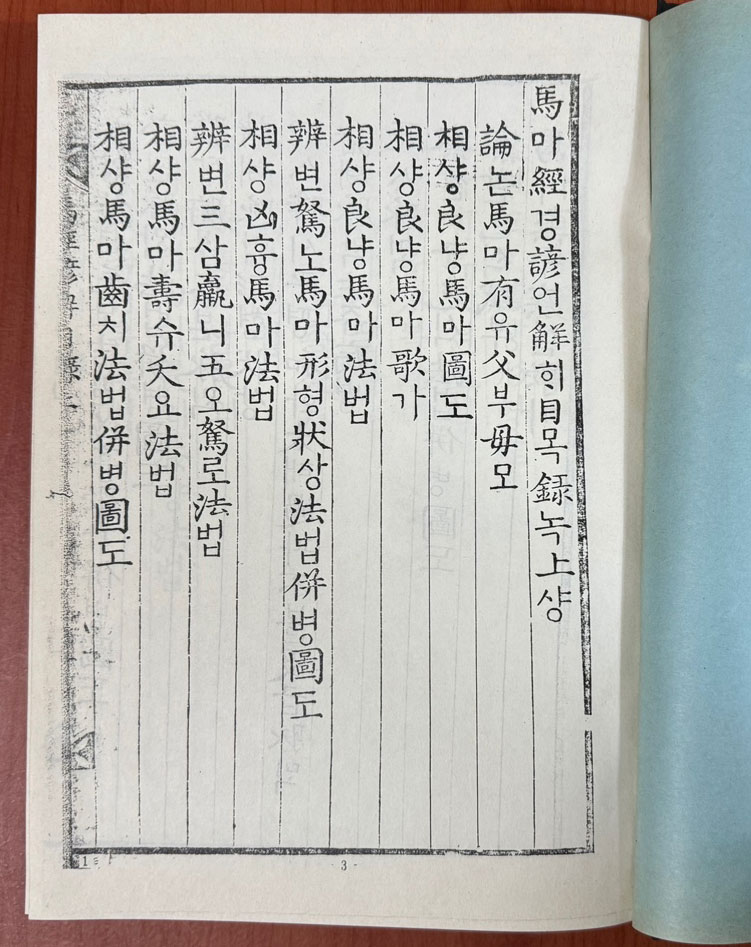 馬마經경諺언解ᄒᆡ目목錄녹上샹
論논馬마有유父부毋모
相샹良냥馬마圖도
相샹良냥馬마歌가
相샹良냥馬마法법
辨변駑노馬마形형狀상法법併병圖도
相샹凶흉馬마法법
辨변三삼羸니五오駑로法법
相샹馬마壽슈夭요法법
相샹馬마齒치法법併병圖도
- 3 -